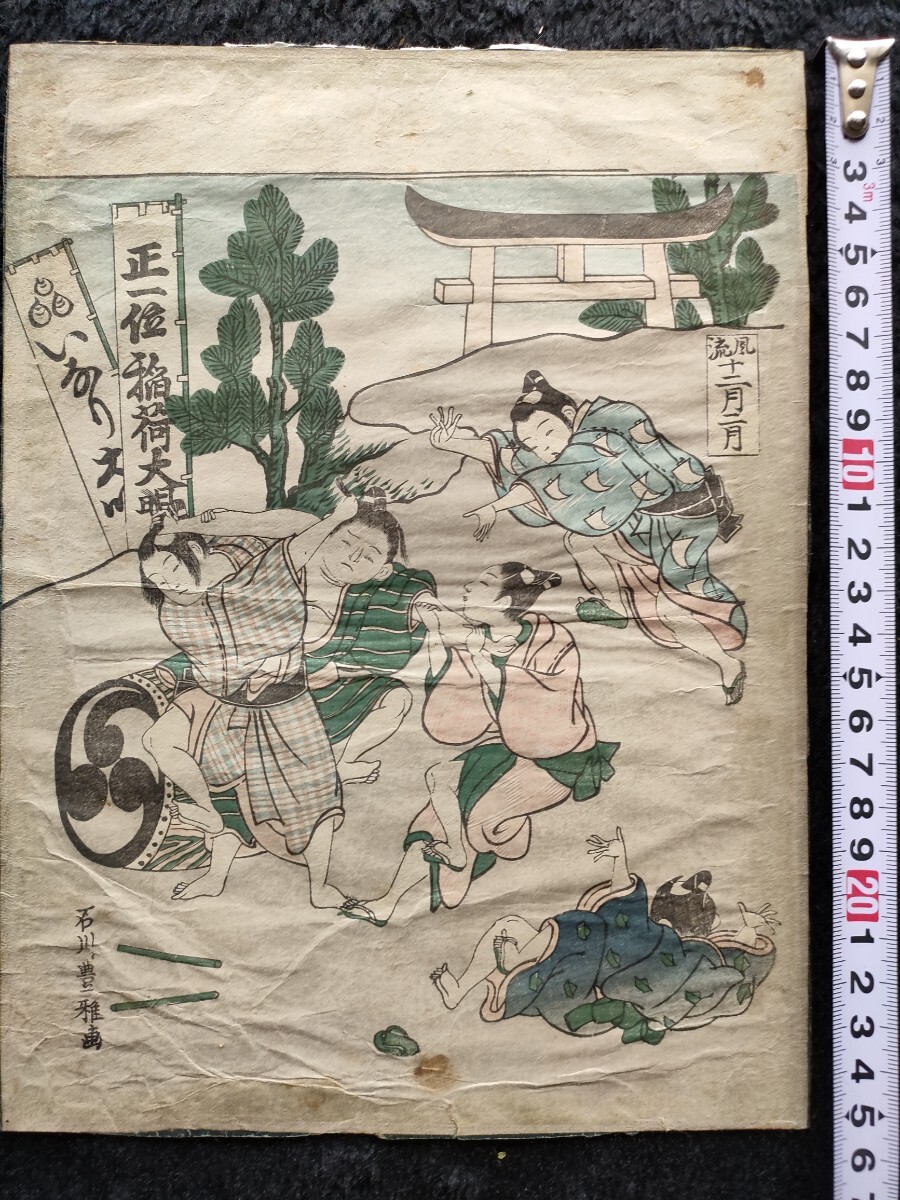 風流
十二月二月
正一位稲荷大明
いなり大明
石川豊雅画
3m
2
3
3
4
5
6
7
8
9
10
1
2
3
4
5
6
7
8
9
20
1
2
3
4
5
6